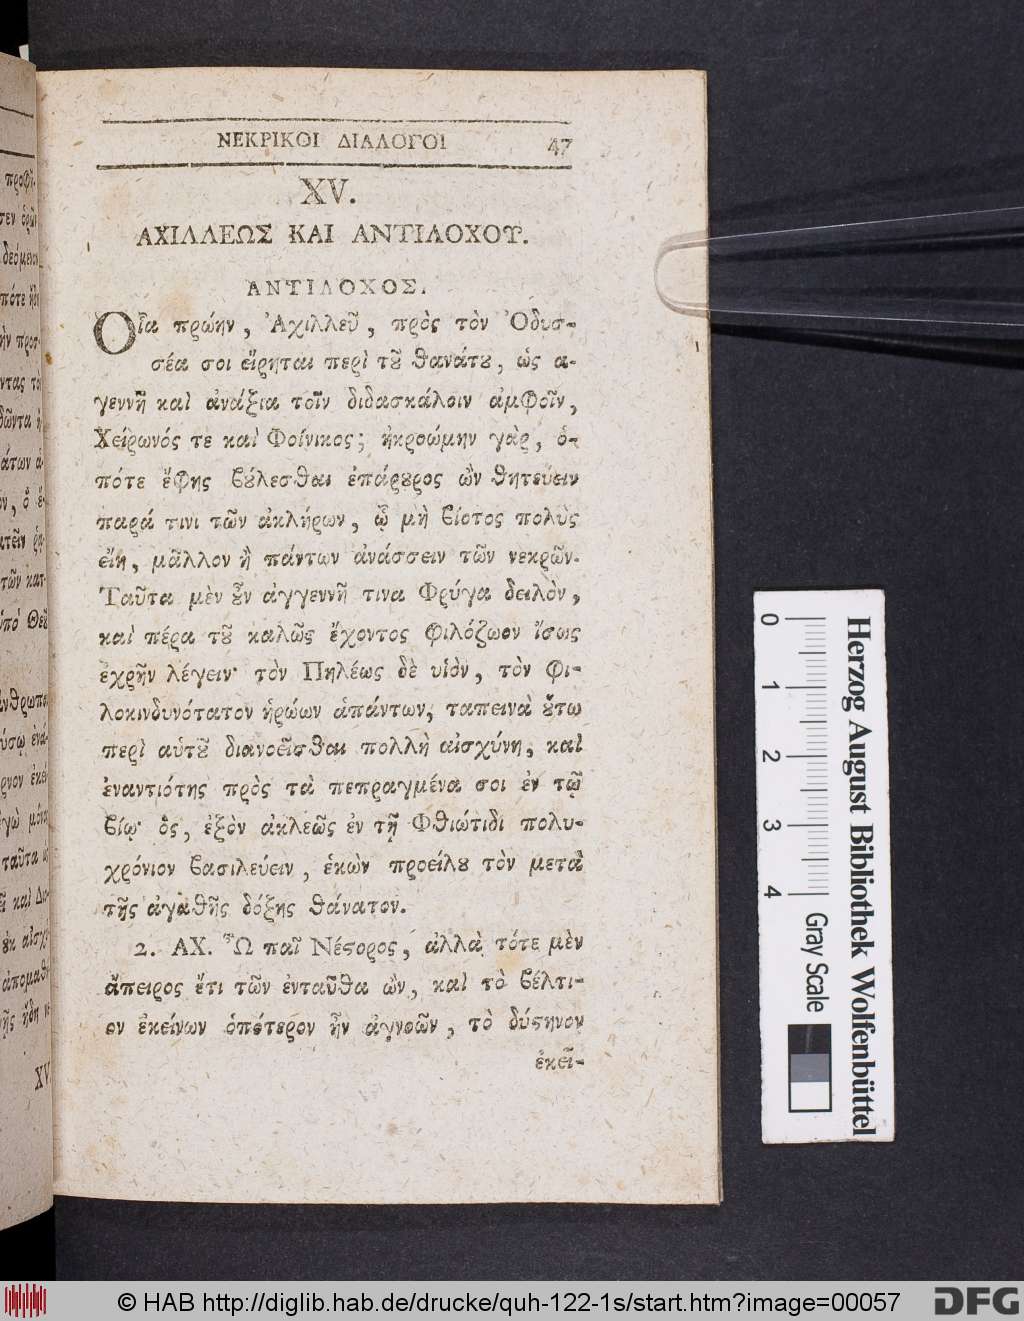 ΝΕΚΡΙΚΟΙ ΔΙΑΛΟΓΟΙ 47
XV.
ΑΧΙΛΛΕΩΣ ΚΑΙ ΑΝΤΙΛΟΧΟΥ.
ΑΝΤΙΛΟΧΟΣ.
Οἷα πρώην, Ἀχιλλεῦ, πρὸς τὸν Ὀδυσ-
σέα σοι εἴρηται περὶ τȣ͂ θανάτȣ, ὡς ἀ-
γεννῆ καὶ ἀνάξια τοῖν διδασκάλοιν ἀμφοῖν,
Χείρωνός τε καὶ Φοίνικος; ἠκροώμην γὰρ, ὁ-
πότε ἔφης βȣ́λεσθαι ἐπάρȣρος ὢν θητεύειν
παρά τινι τῶν ἀκλήρων, ᾧ μὴ βίοτος πολὺς
εἴη, μᾶλλον ἢ πάντων ἀνάσσειν τῶν νεκρῶν.
Ταῦτα μὲν ȣ̓͂ν ἀγγεννῆ τινα Φρύγα δειλὸν,
καὶ πέρα τȣ͂ καλῶς ἔχοντος φιλόζωον ἴσως
ἐχρῆν λέγειν· τὸν Πηλέως δὲ υἱὸν, τὸν φι-
λοκινδυνότατον ἡρώων ἁπάντων, ταπεινὰ ȣ̔́τω
περὶ αὑτȣ͂ διανοεῖσθαι πολλὴ αἰσχύνη, καὶ
ἐναντιότης πρὸς τὰ πεπραγμένα σοι ἐν τῷ
βίῳ· ὃς, ἐξὸν ἀκλεῶς ἐν τῇ Φθιώτιδι πολυ-
χρόνιον βασιλεύειν, ἑκὼν προείλȣ τὸν μετὰ
τῆς ἀγαθῆς δόξης θάνατον.
2. ΑΧ. Ὦ παῖ Νέϛορος, ἀλλὰ τότε μὲν
ἄπειρος ἔτι τῶν ἐνταῦθα ὢν, καὶ τὸ βέλτι-
ον ἐκείνων ὁπότερον ἦν ἀγνοῶν, τὸ δύϛηνον
ἐκεῖ-
Herzog August Bibliothek Wolfenbüttel
0 1 2 3 4 Gray Scale
© HAB http://diglib.hab.de/drucke/quh-122-1s/start.htm?image=00057
DFG